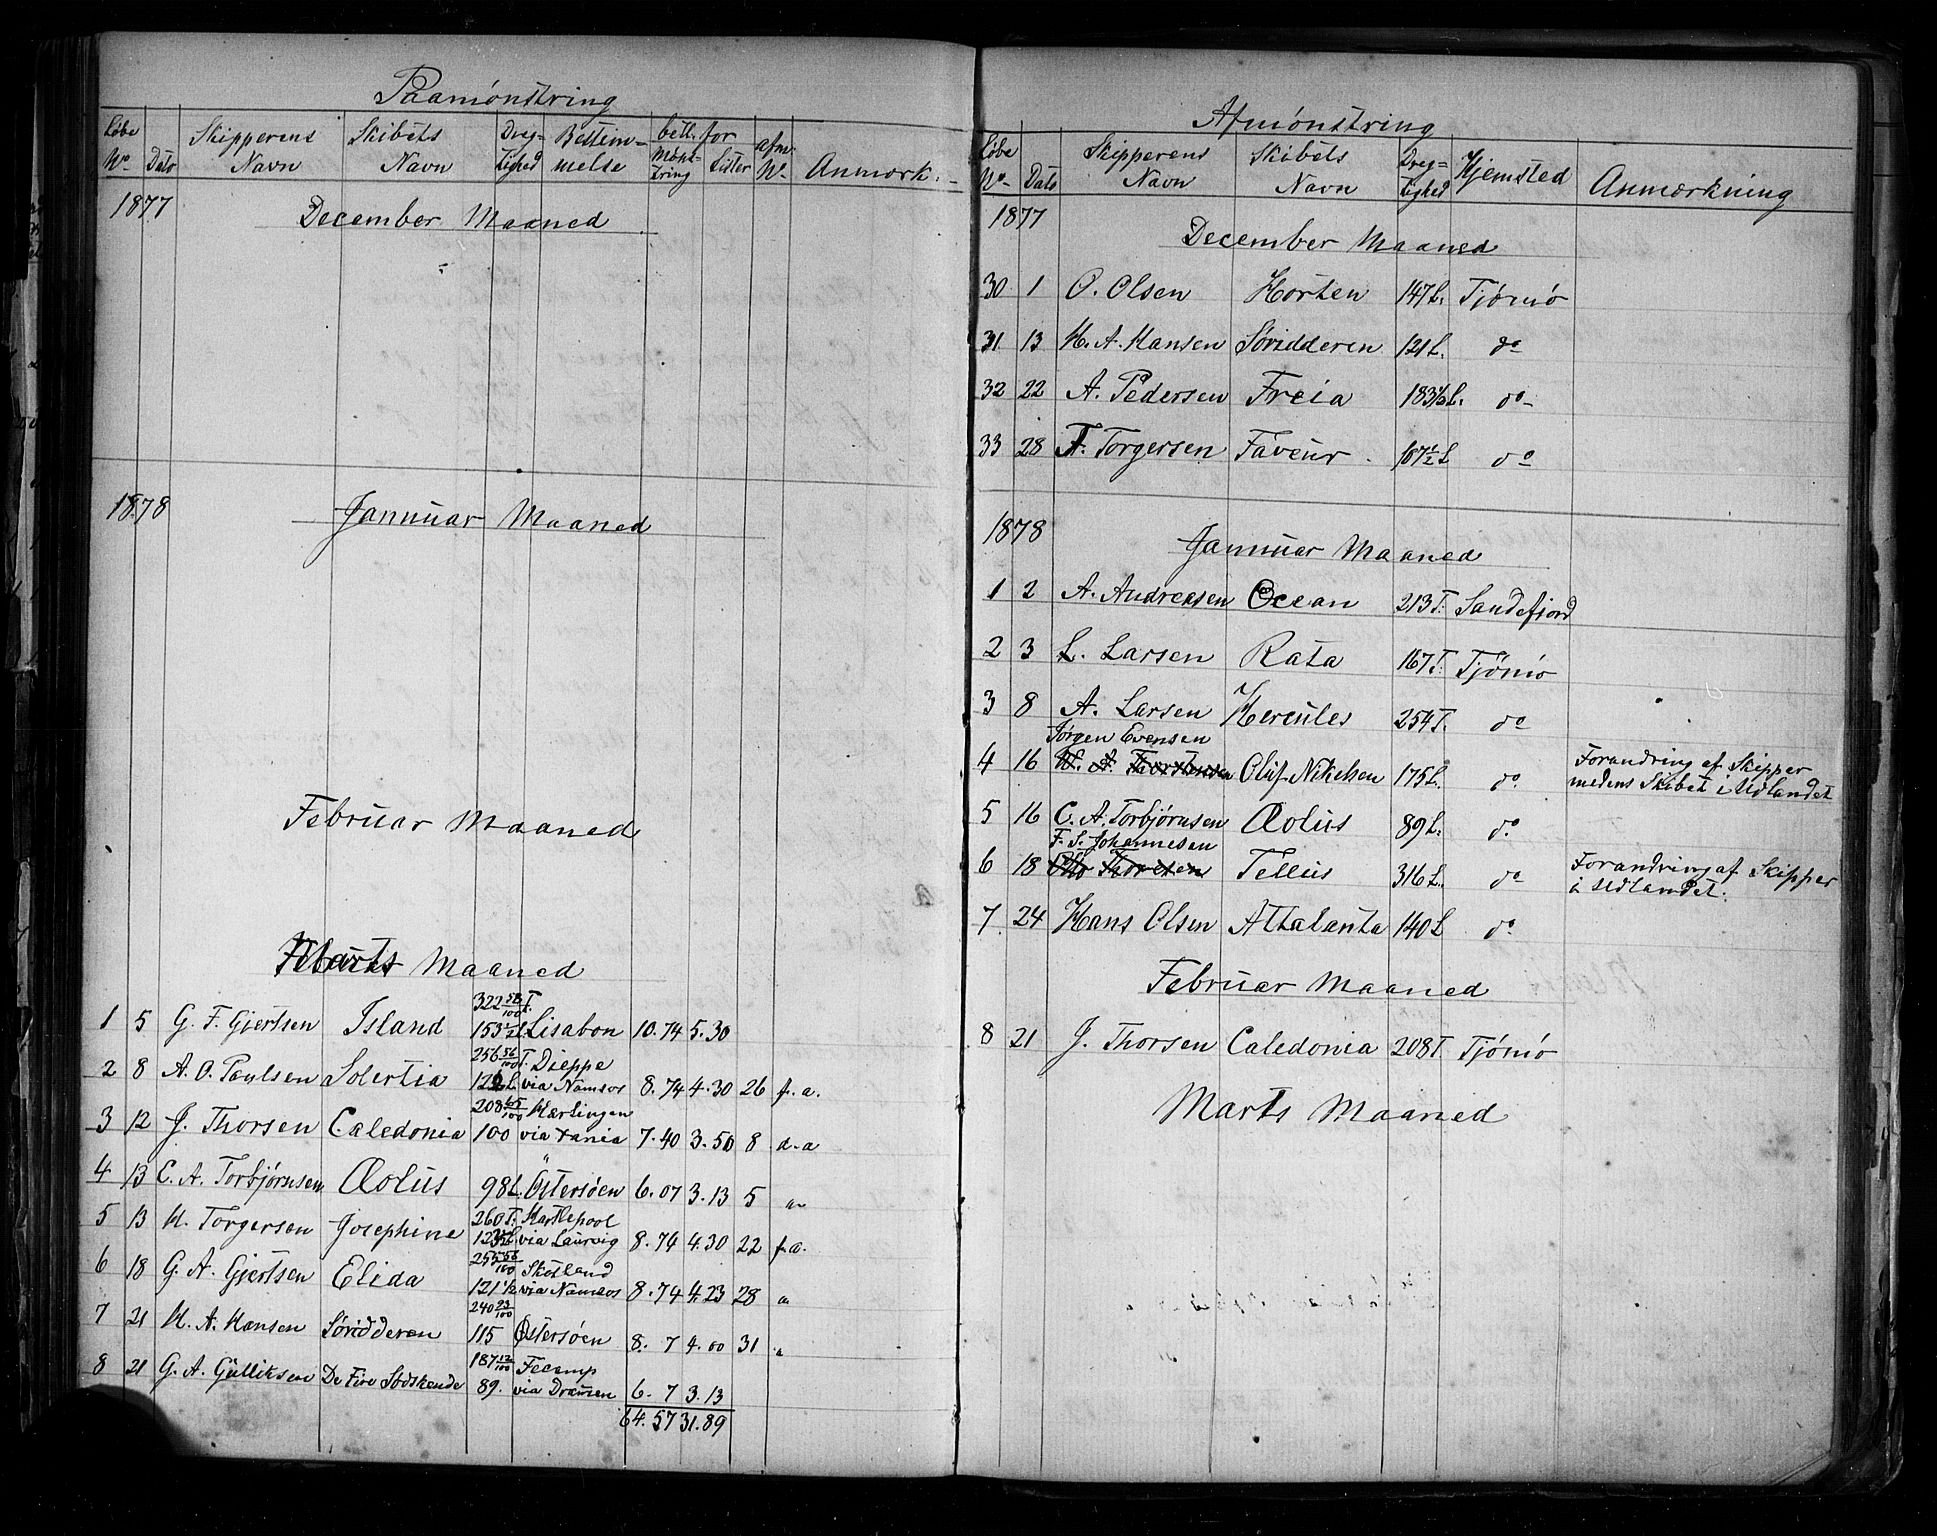 Paamönstring
Löbe No Dato Skipperens Navn Skibets Navn Dræg=tighed Bestem=melse bett. for Mönstring Lister afm. No Anmærk.
1877 December Maaned
1878 Januuar Maaned
Februar Maaned
Marts Maaned
1 5 G. F. Gjertsen Island 322 58/100 T. 153 1/2 L Lisabon 10.74 5.30
2 8 A. O. Paulsen Solertia 256 56/100 T. 122 L Dieppe via Namsos 8.74 4.30 26 f.a.
3 12 J. Thorsen Caledonia 208 65/100 100 Harlingen via Krania 7.40 3.50 8 d.a
4 13 C. A. Torbjörnsen Æolus 98 L. Östersöen 6.07 3.13 5 "
5 13 H. Torgersen Josephine 260 T. 123 1/2 L Hartlepool via Laurvig 8.74 4.30 22 f.a.
6 18 G. A. Gjertsen Elida 255 56/100 121 1/2 Skotland via Namsos 8.74 4.23 28 "
7 21 H. A. Hansen Söridderen 240 23/100 115 Östersöen 8. 7 4.00 31 "
8 21 G. A. Gulliksen De Fire Södskende 187 12/100 89. Fecamp via Dramen 6. 7 3.13
64.57 31.89
Afmönstring
Löbe No Dato Skipperens Navn Skibets Navn Dræg=tighed Hjemsted Anmærkning
1877
December Maaned
30 1 O. Olsen Horten 147 L. Tjömö
31 13 H. A. Hansen Söridderen 121 L. do
32 22 A. Pedersen Freia 183 1/2 L. do
33 28 T. Torgersen Faveur 107 1/2 L do
1878
Januuar Maaned
1 2 A. Andreasen Ocean 213 T. Sandefjord
2 3 L. Larsen Rata 167 T. Tjömö
3 8 A. Larsen Hercules 254 T. do
Jörgen Evensen
4 16 H. A. Thorstensen Oluf Nikelsen 175 L. do Forandring af Skipper
medens Skibet i Udlandet
5 16 C. A. Torbjörnsen Æolus 89 L. do
F. S. Johannesen
6 18 Otto Thoresen Tellus 316 L. do Forandring af Skipper
i Udlandet.
7 24 Hans Olsen Attalanta 140 L do
Februar Maaned
8 21 J. Thorsen Caledonia 208 T Tjömö
Marts Maaned